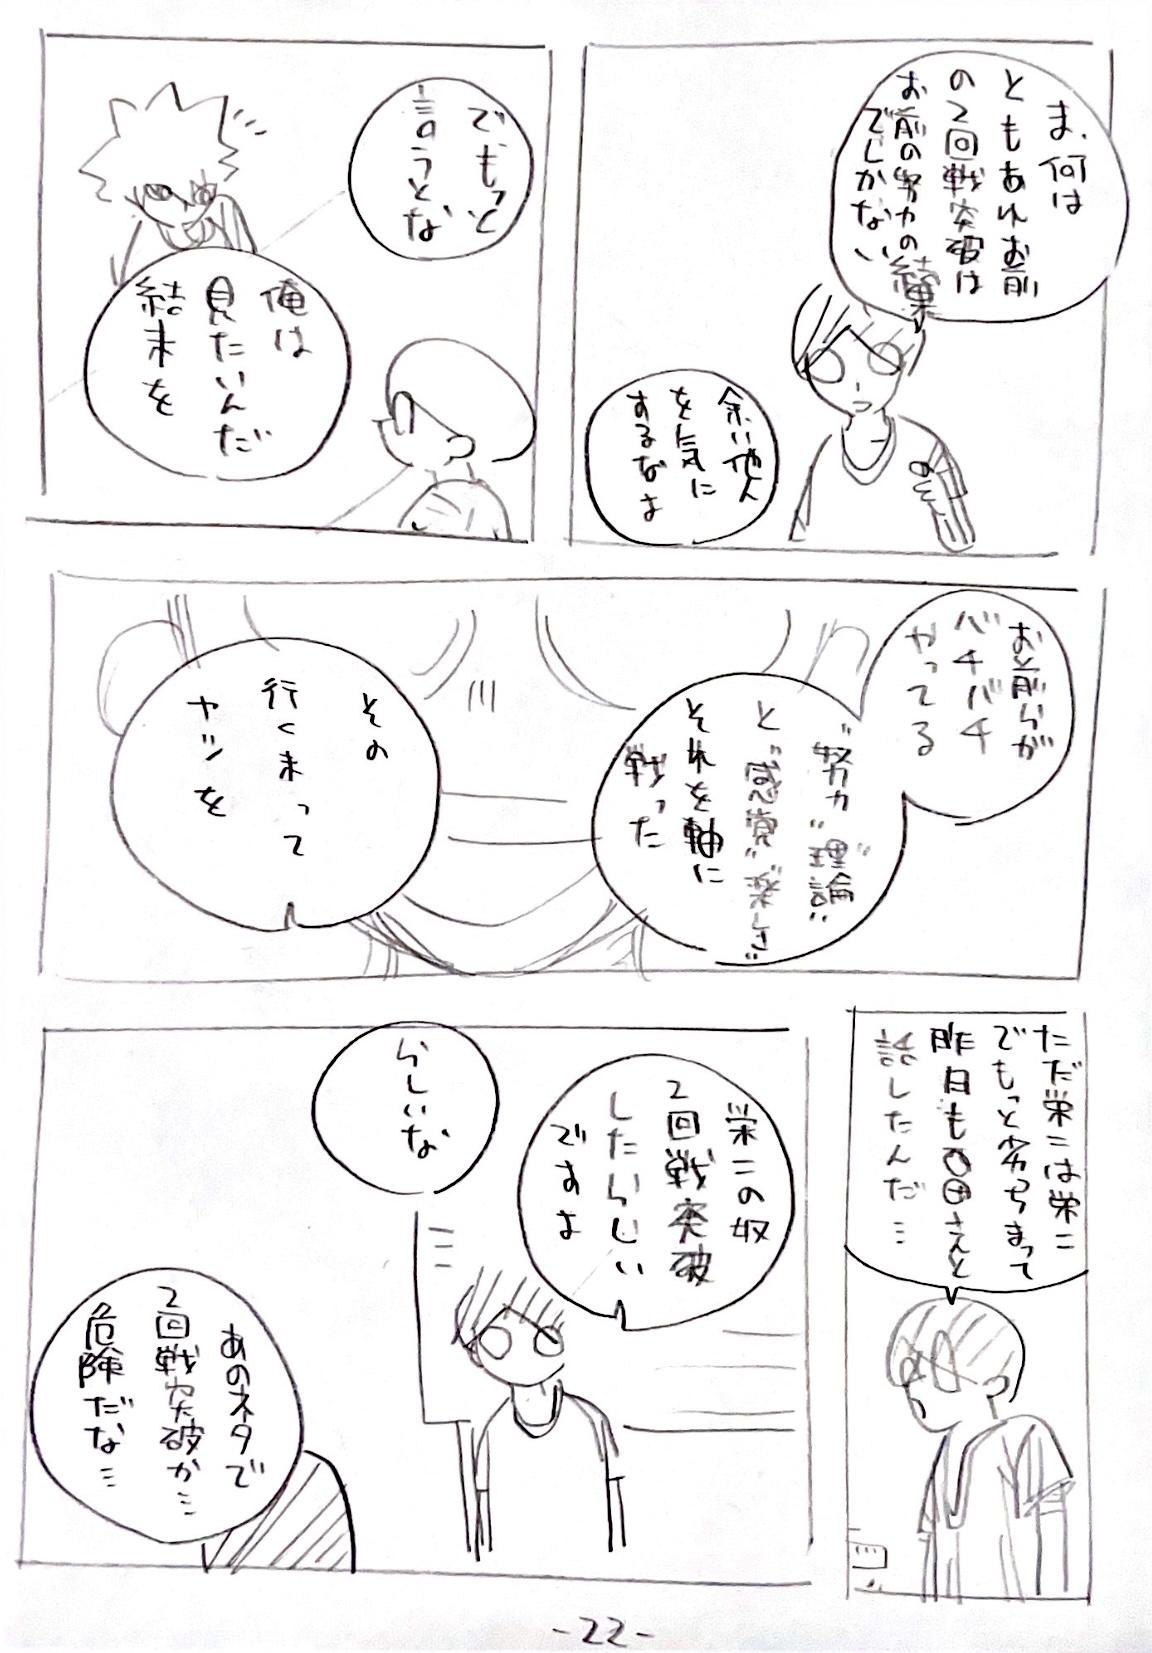 ま、何は
ともあれお前
の2回戦突破は
お前の努力の結果
でしかない
余り他人
を気に
するなよ
でもっと
言うとな
俺は
見たいんだ
結末を
お前らが
バチバチ
やってる
"努力""理論"
と"感覚""楽しさ"
それを軸に
戦った
その
行く末って
ヤツを
ただ栄二は栄二
でもっと劣っちまって
昨日も
話したんだ…
栄二の奴
2回戦突破
したらしい
ですよ
らしいな
あのネタで
2回戦突破か…
危険だな…
-22-